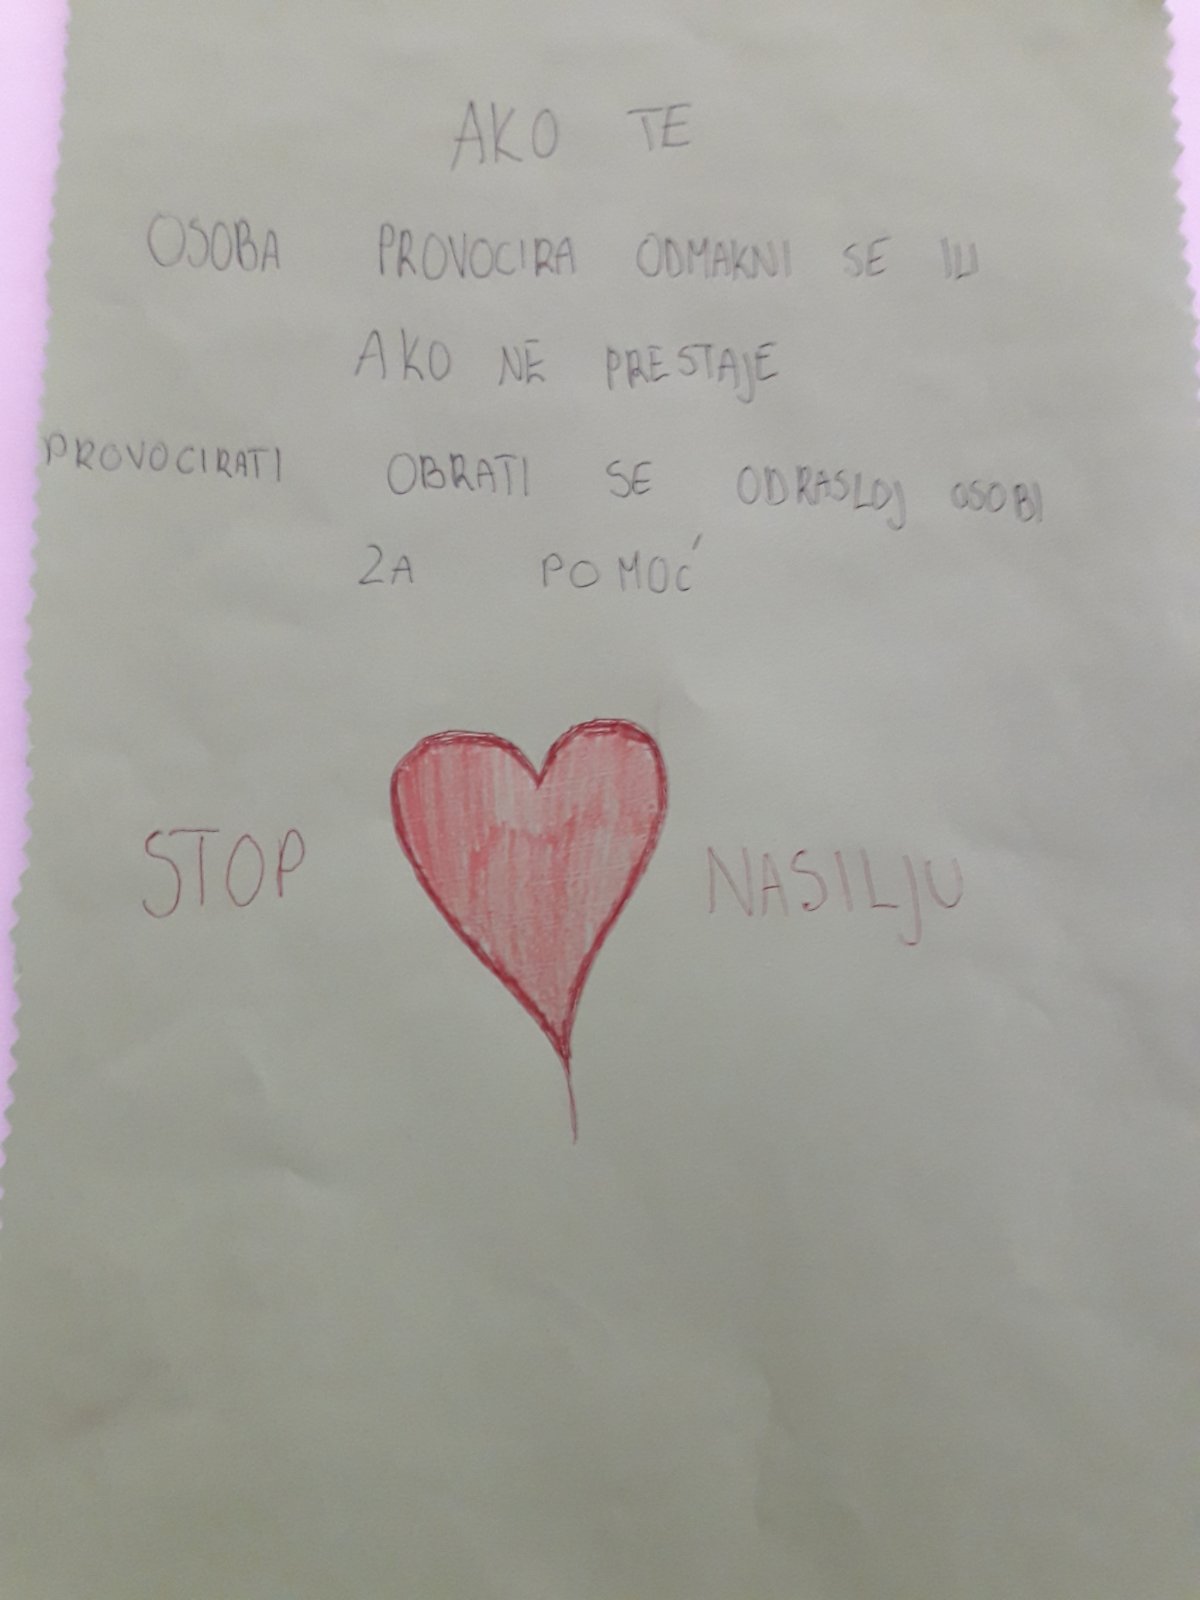 AKO TE
OSOBA PROVOCIRA ODMAKNI SE ILI
AKO NE PRESTAJE
PROVOCIRATI OBRATI SE ODRASLOJ OSOBI
ZA POMOĆ
STOP NASILJU